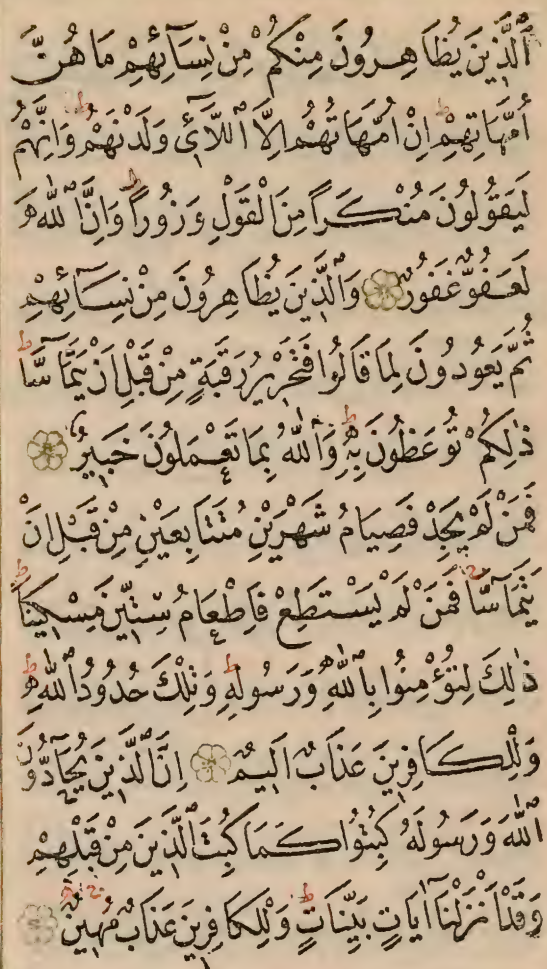 اَلَّذِينَ يُظَاهِرُونَ مِنْكُمْ مِنْ نِسَآئِهِمْ مَا هُنَّ
اُمَّهَاتِهِمْ اِنْ اُمَّهَاتُهُمْ اِلَّا اللَّآئِي وَلَدْنَهُمْ وَاِنَّهُمْ
لَيَقُولُونَ مُنْكَراً مِنَ الْقَوْلِ وَزُوراً وَاِنَّ اللّٰهَ
لَعَفُوٌّ غَفُورٌ وَالَّذِينَ يُظَاهِرُونَ مِنْ نِسَآئِهِمْ
ثُمَّ يَعُودُونَ لِمَا قَالُوا فَتَحْرِيرُ رَقَبَةٍ مِنْ قَبْلِ اَنْ يَتَمَآسَّا
ذٰلِكُمْ تُوعَظُونَ بِهِ وَاللّٰهُ بِمَا تَعْمَلُونَ خَبِيرٌ
فَمَنْ لَمْ يَجِدْ فَصِيَامُ شَهْرَيْنِ مُتَتَابِعَيْنِ مِنْ قَبْلِ اَنْ
يَتَمَآسَّا فَمَنْ لَمْ يَسْتَطِعْ فَاِطْعَامُ سِتِّينَ مِسْكِيناً
ذٰلِكَ لِتُؤْمِنُوا بِاللّٰهِ وَرَسُولِهِ وَتِلْكَ حُدُودُ اللّٰهِ
وَلِلْكَافِرِينَ عَذَابٌ اَلِيمٌ اِنَّ الَّذِينَ يُحَآدُّونَ
اللّٰهَ وَرَسُولَهُ كُبِتُوا كَمَا كُبِتَ الَّذِينَ مِنْ قَبْلِهِمْ
وَقَدْ اَنْزَلْنَآ اٰيَاتٍ بَيِّنَاتٍ وَلِلْكَافِرِينَ عَذَابٌ مُهِينٌ